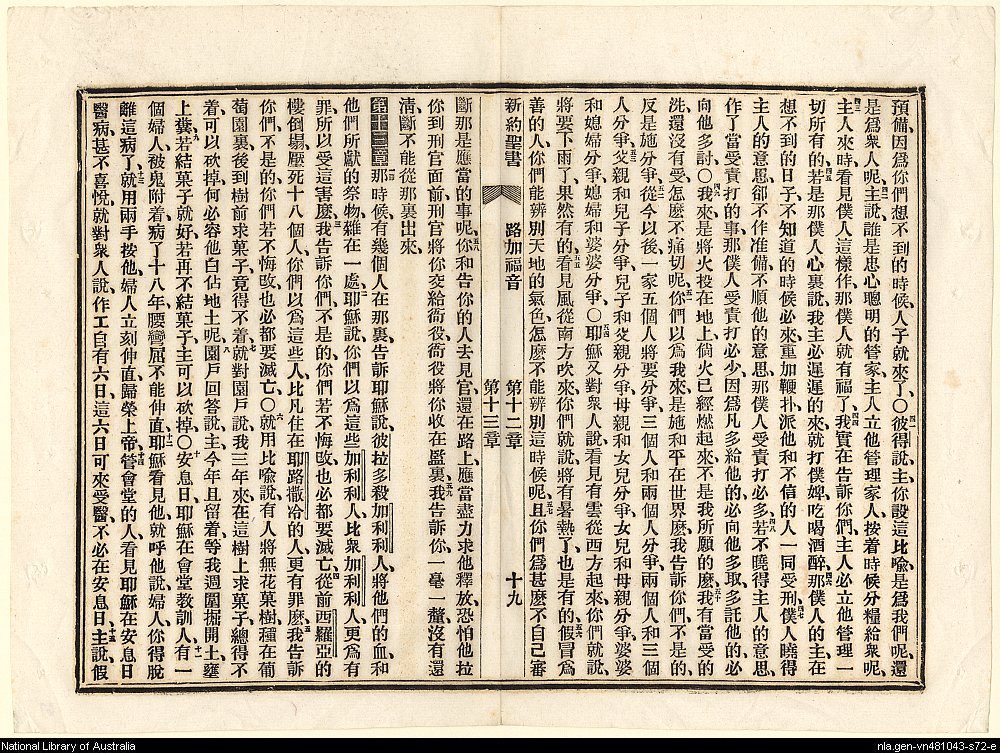 預備、因爲你們想不到的時候、人子就來了、○彼得說、主你設這比喻、是爲我們呢、還
是爲衆人呢、主說、誰是忠心聰明的管家、主人立他管理家人、按着時候分糧給衆呢、
主人來時、看見僕人這樣作、那僕人就有福了、我實在告訴你們、主人必立他管理一
切所有的、若是那僕人心裏說、我主必遲遲的來、就打僕婢、吃喝酒醉、那僕人的主、在
想不到的日子、不知道的時候必來、重加鞭扑、派他和不信的人一同受刑、僕人曉得
主人的意思、卻不作准備、不順他的意思、那僕人受責打必多、若不曉得主人的意思、
作了當受責打的事、那僕人受責打必少、因爲凡多給他的、必向他多取、多託他的、必
向他多討、○我來是將火投在地上、倘火已經燃起來、不是我所願的麼、我有當受的
洗、還沒有受、怎麼不痛切呢、你們以爲我來是施和平在世界麼、我告訴你們、不是的、
反是施分爭、從今以後、一家五個人將要分爭、三個人和兩個人分爭、兩個人和三個
人分爭、父親和兒子分爭、兒子和父親分爭、母親和女兒分爭、女兒和母親分爭、婆婆
和媳婦分爭、媳婦和婆婆分爭、○耶穌又對衆人說、看見有雲從西方起來、你們就說、
將要下雨了、果然有的、看見風從南方吹來、你們就說、將有暑熱了、也是有的、假冒爲
善的人、你們能辨別天地的氣色、怎麼不能辨別這時候呢、且你們爲甚麼不自己審
新約聖書 路加福音 第十二章 第十三章 十九
斷那是應當的事呢、你和告你的人去見官、還在路上、應當盡力求他釋放、恐怕他拉
你到刑官面前、刑官將你交給衙役、衙役將你收在監裏、我告訴你、一毫一釐沒有還
清、斷不能從那裏出來、
第十三章 那時候有幾個人在那裏、告訴耶穌說、彼拉多殺加利利人、將他們的血和
他們所獻的祭物、雜在一處、耶穌說、你們以爲這些加利利人、比衆加利利人更爲有
罪、所以受這害麼、我告訴你們、不是的、你們若不悔改、也必都要滅亡、從前西羅亞的
樓倒塌、壓死十八個人、你們以爲這些人比凡住在耶路撒冷的人、更有罪麼、我告訴
你們、不是的、你們若不悔改、也必都要滅亡、○就用比喻說、有人將無花菓樹種在葡
萄園裏、後到樹前求菓子、竟得不着、就對園戶說、我三年來在這樹上求菓子、總得不
着、可以砍掉、何必容他白佔地土呢、園戶回答說、主、今年且留着、等我週圍掘開土、壅
上糞、若結菓子就好、若再不結菓子、主可以砍掉、○安息日、耶穌在會堂教訓人、有一
個婦人、被鬼附着、病了十八年、腰彎屈不能伸直、耶穌看見他、就呼他說、婦人、你得脫
離這病了、就用兩手按他、婦人立刻伸直、歸榮上帝、管會堂的人、看見耶穌在安息日
醫病、甚不喜悅、就對衆人說、作工自有六日、這六日可來受醫、不必在安息日、主說、假
National Library of Australia
nla.gen-vn481043-s72-e